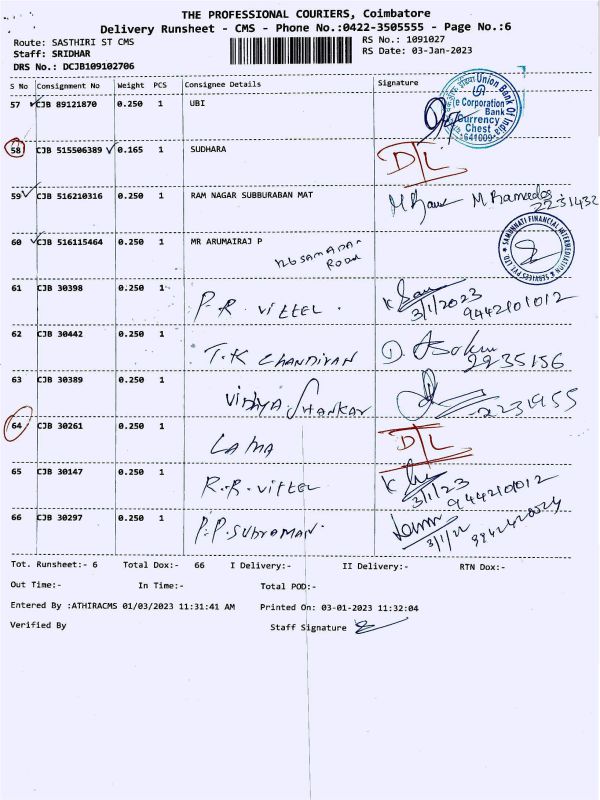 THE PROFESSIONAL COURIERS, Coimbatore
Delivery Runsheet - CMS - Phone No.:0422-3505555 - Page No.:6
Route: SASTHIRI ST CMS RS No.: 1091027
Staff: SRIDHAR RS Date: 03-Jan-2023
DRS No.: DCJB109102706
S No Consignment No Weight PCS Consignee Details Signature
57 CJB 89121870 0.250 1 UBI
Union Bank Of India
e Corporation Bank
Currency Chest
641009
58 CJB 515506389 0.165 1 SUDHARA D/L
59 CJB 516210316 0.250 1 RAM NAGAR SUBBURABAN MAT
2231432
60 CJB 516115464 0.250 1 MR ARUMAIRAJ P
ROAD
SAMUNNATI FINANCIAL INTERMEDIATION & SERVICES PVT. LTD.
61 CJB 30398 0.250 1 P.R. VITTEL. 3/1/2023
9442101012
62 CJB 30442 0.250 1 T.K CHANDIYAN
2235156
63 CJB 30389 0.250 1 VIDHYA SHANKAR 2231955
64 CJB 30261 0.250 1 LAMA D/L
65 CJB 30147 0.250 1 R.R. VITTEL 3/1/23
9442101012
66 CJB 30297 0.250 1 P.P. SUBROMAN.
3/1/22
Tot. Runsheet:- 6 Total Dox:- 66 I Delivery:- II Delivery:- RTN Dox:-
Out Time:- In Time:- Total POD:-
Entered By :ATHIRACMS 01/03/2023 11:31:41 AM Printed On: 03-01-2023 11:32:04
Verified By Staff Signature